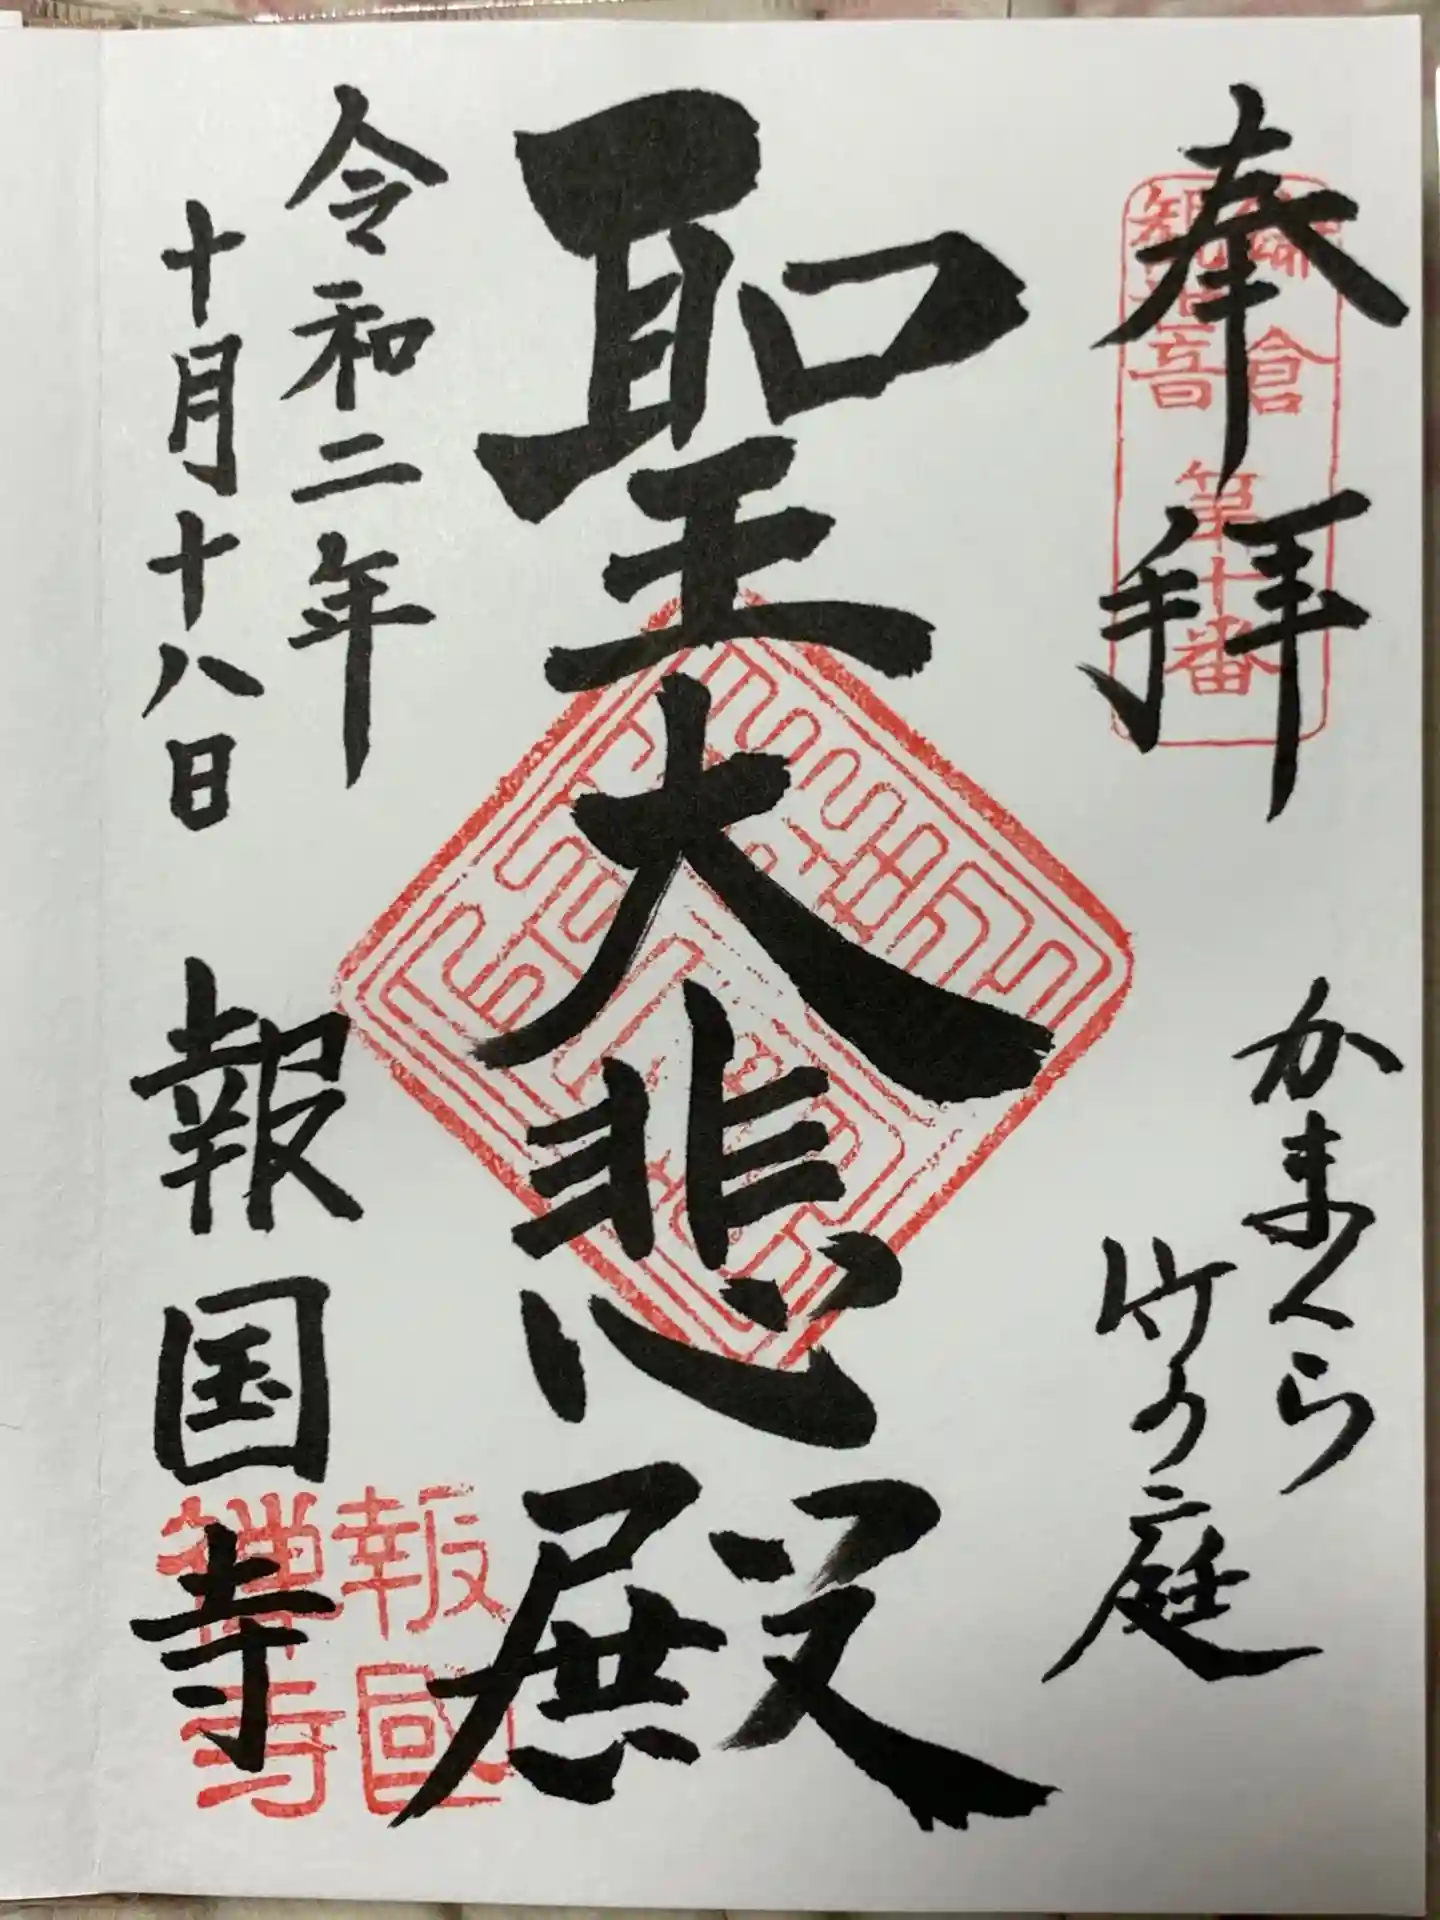 奉拝
鎌倉
観世音
第十番
かまくら
竹の庭
聖大悲殿
令和二年
十月十八日
報国寺
報國
禅寺